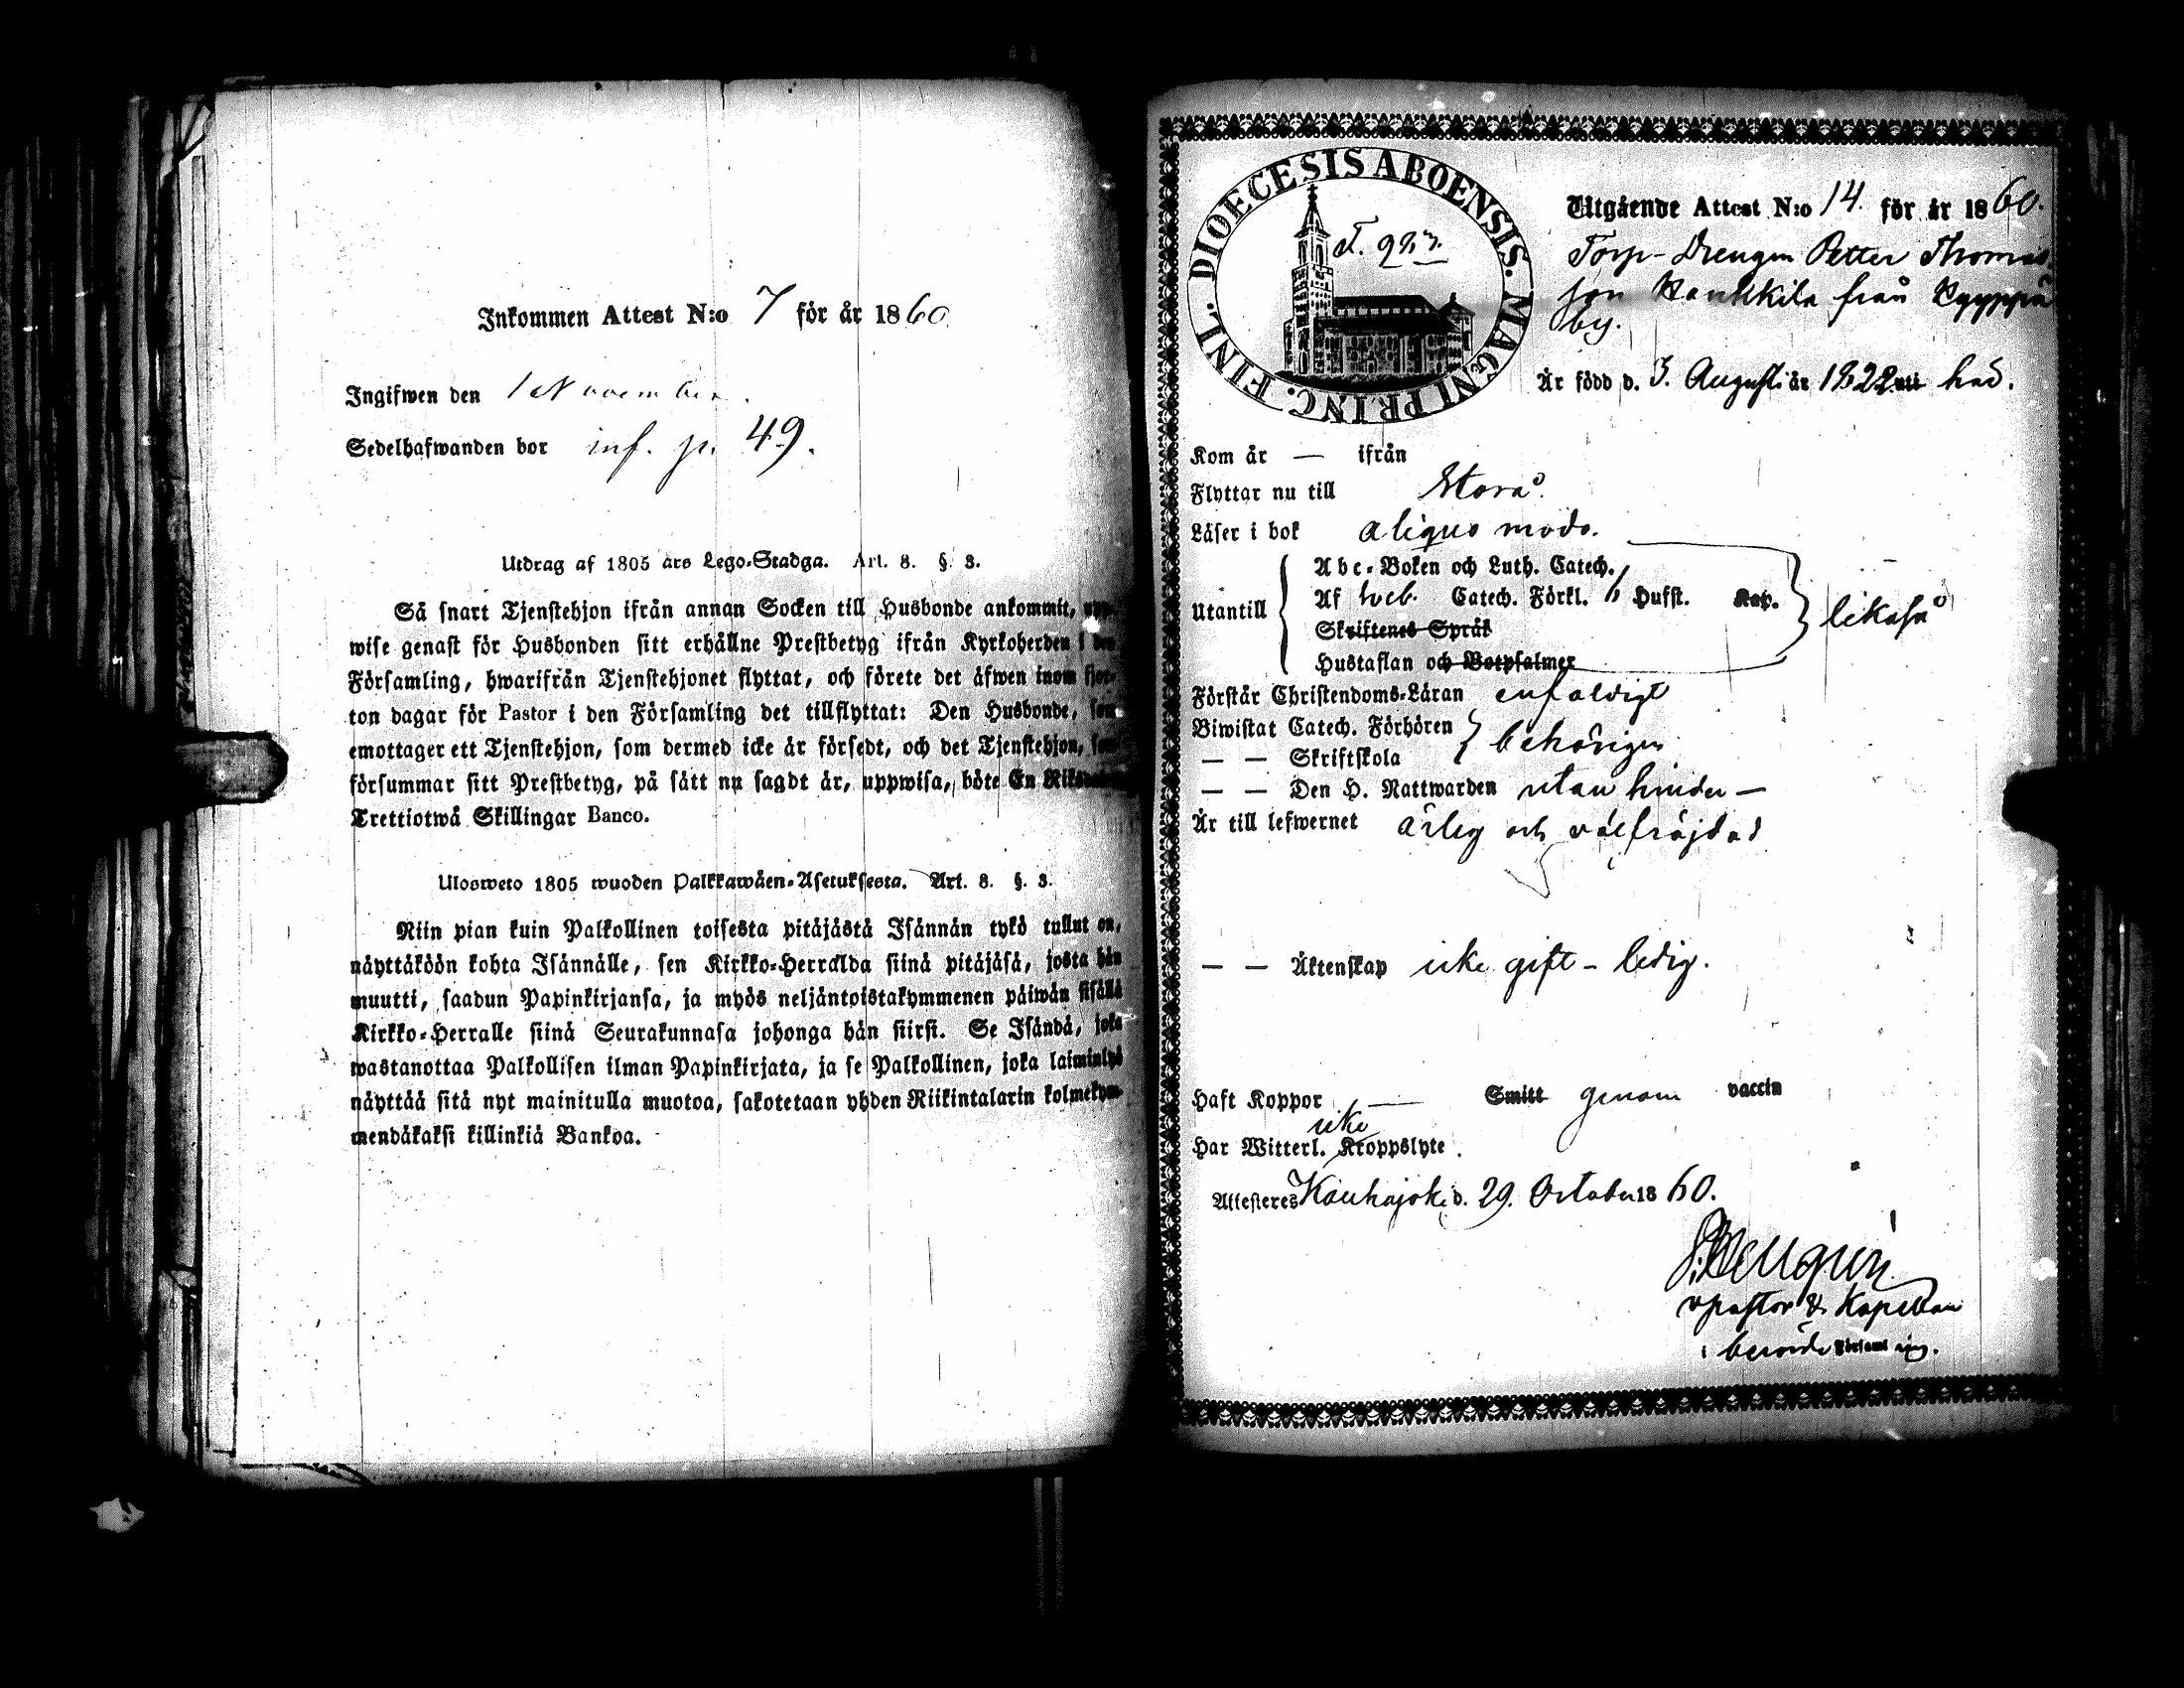 Inkommen Attest N:o 7 för år 1860.
Ingifwen den 1 November.
Sedelhafwanden bor inf. p. 49.
Utdrag af 1805 års Lego-Stadga. Art. 8. §. 3.
Så snart Tjenstehjon ifrån annan Socken till Husbonde ankommit, upp-
wise genast för Husbonden sitt erhållne Prestbetyg ifrån Kyrkoherden i den
Församling, hwarifrån Tjenstehjonet flyttat, och förete det äfwen inom fjor-
ton dagar för Pastor i den Församling det tillflyttat: Den Husbonde, som
emottager ett Tjenstehjon, som dermed icke är försedt, och det Tjenstehjon, som
försummar sitt Prestbetyg, på sätt nu sagdt är, uppwisa, böte En Riksdaler
Trettiotwå Skillingar Banco.
Ulosweto 1805 wuoden Palkkawäen-Asetuksesta. Art. 8. §. 3.
Niin pian kuin Palkollinen toisesta pitäjästä Isännän tykö tullut on,
näyttäköön kohta Isännälle, sen Kirkko-Herralda siinä pitäjäsä, josta hän
muutti, saadun Papinkirjansa, ja myös neljäntoistakymmenen päiwän sisällä
Kirkko-Herralle siinä Seurakunnasa johonga hän siirsi. Se Isändä, joka
wastanottaa Palkollisen ilman Papinkirjata, ja se Palkollinen, joka laiminlyö
näyttää sitä nyt mainitulla muotoa, sakotetaan yhden Riikintalarin kolmekym-
mendäkaksi killinkiä Bankoa.
DIOECESIS ABOENSIS. MAGNI PRINC. FINL.
Utgående Attest N:o 14. för år 1860.
Torp-Drengen Petter Thomas
son Haukkila från Kyyppä
by.
Är född d. 3. Augusti år 1822. uti häd.
Kom år — ifrån
Flyttar nu till Storå.
Läser i bok aliquo modo.
Utantill
Abc-Boken och Luth. Catech.
Af Sveb. Catech. Förkl. Husst. Kap.
Skriftenes Språk
Hustaflan och Botpsalmer
likaså
Förstår Christendoms-Läran enfaldigt
Biwistat Catech. Förhören
— — Skriftskola
behörigen
— — Den H. Nattwarden utan hinder —
Är till lefwernet ärlig och välfräjdad
— — Äktenskap icke gift - ledig.
Haft Koppor — Smitt genom vaccin
Har Witterl. icke Kroppslyte.
Attesteres Kauhajoki d. 29. October 1860.
vpastor & Kapellan
i berörde Församling.